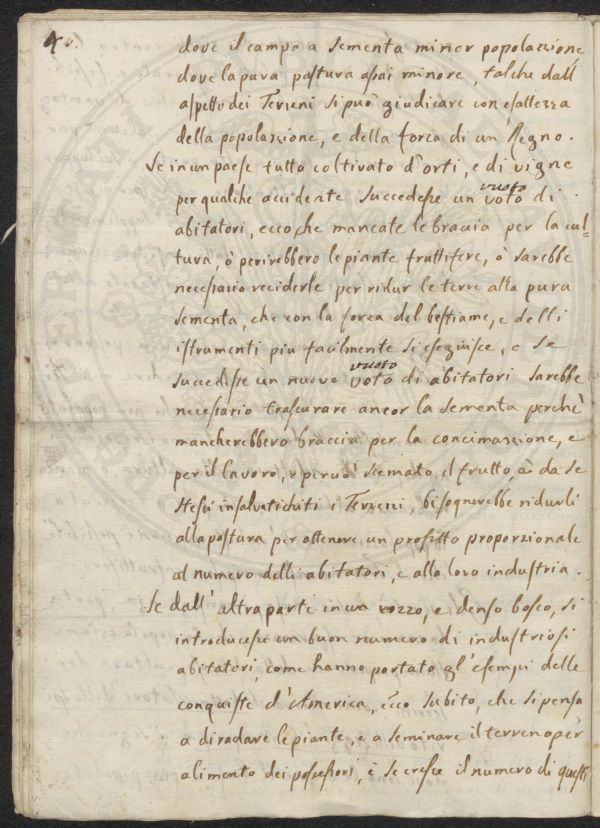 4 v.
dove il campo a sementa minor popolazione,
dove la pura pastura assai minore, talche dall'
aspetto dei Terreni si può giudicare con esattezza
della popolazione, e della forza di un Regno.
Se in un paese tutto coltivato d'orti, e di vigne
per qualche accidente succedesse un voto di
vuoto
abitatori, ecco che mancate le braccia per la cul=
tura, ò perirebbero le piante fruttifere, ò sarebbe
necessario reciderle per ridur le terre alla pura
sementa, che con la forza del bestiame, e delli
istrumenti piu facilmente si eseguisce, e se
succedesse un nuovo voto di abitatori sarebbe
vuoto
necessario trascurare ancor la sementa perchè
mancherebbero braccia per la concimazione, e
per il lavoro, e perciò scemato il frutto, da se
stessi insalvatichiti i Terreni, bisognerebbe ridurli
alla pastura per ottenere un profitto proporzionale
al numero delli abitatori, e alla loro industria.
Se dall'altra parte in un rozzo, e denso bosco, si
introducesse un buon numero di industriosi
abitatori, come hanno portato gl'esempi delle
conquiste d'America, ecco subito, che si pensa
a diradare le piante, e a seminare il terreno per
alimento dei possessori, e se cresce il numero di questi